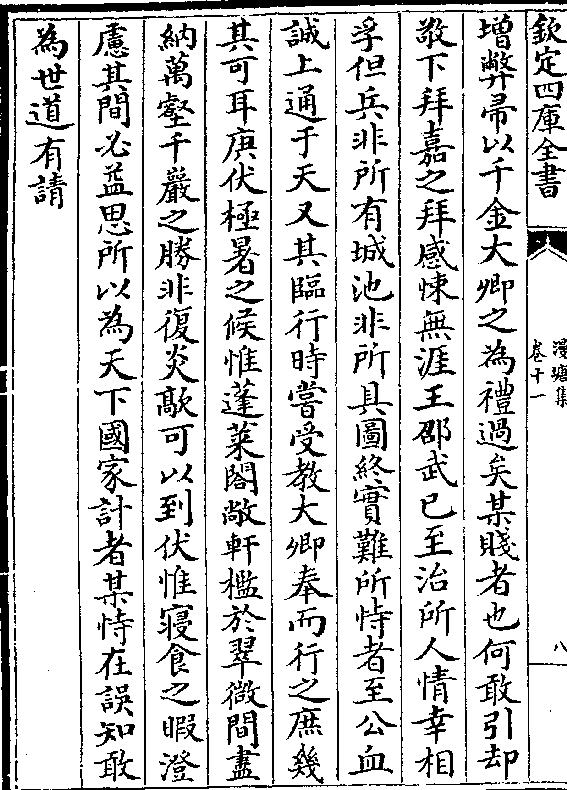 欽定四庫全書
漫塘集
卷十一
八
增弊帚以千金大卿之為禮過矣某賤者也何敢引却
敬下拜嘉之拜感悚無涯王邵武已至治所人情幸相
孚但兵非所有城池非所具圖終實難所恃者至公血
誠上通于天又其臨行時嘗受教大卿奉而行之庶幾
其可耳庚伏極暑之候惟蓬萊閣敞軒檻於翠微間盡
納萬壑千巖之勝非復炎歊可以到伏惟寢食之暇澄
慮其間必益思所以為天下國家計者某恃在誤知敢
為世道有請